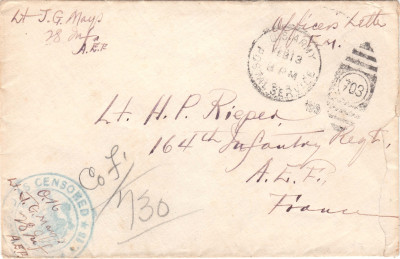 Lt J. G. Mays
28 Inf
A.E.F.
Officers Letter
F.M.
U.S. ARMY
13
PM
POSTAL SERVICE
703
Lt. H. P. Rieper,
164th Infantry Regt.
A. E. F.,
France
Co F,
730
CENSORED
Lt J. G. Mays
28 Inf
A.E.F.